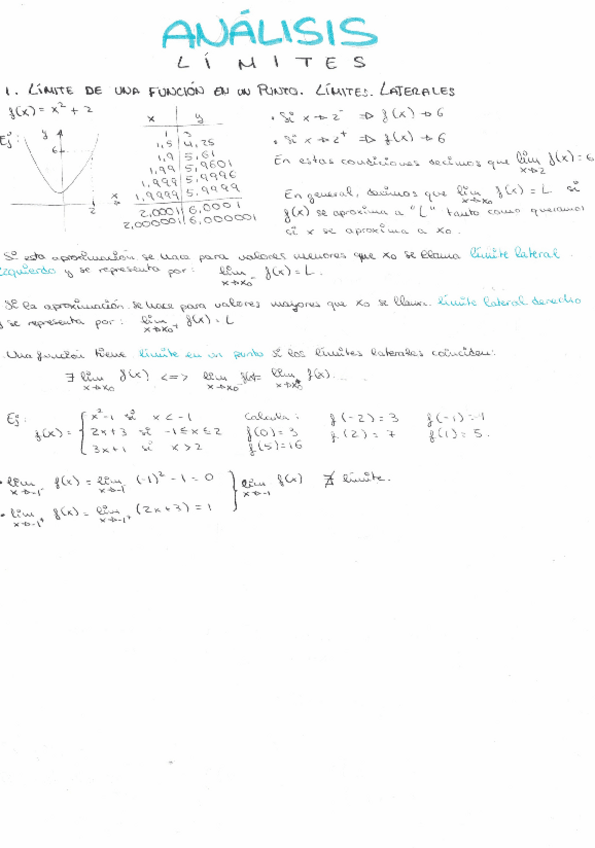 ANÁLISIS
LÍMITES
1. LÍMITE DE UNA FUNCIÓN EN UN PUNTO. LÍMITES. LATERALES
f(x) = x² + 2
Ej:
y
6
2
x
x | y
1 | 3
1,5 | 4,25
1,9 | 5,61
1,99 | 5,9601
1,999 | 5,9996
1,9999 | 5,9999
2,0001 | 6,0001
2,000001 | 6,000001
• Si x → 2⁻ ⇒ f(x) → 6
• Si x → 2⁺ ⇒ f(x) → 6
En estas condiciones decimos que lim x→2 f(x) = 6
En general, decimos que lim x→x₀ f(x) = L si
f(x) se aproxima a "L" tanto como queramos
si x se aproxima a x₀.
Si esta aproximación se hace para valores menores que x₀ se llama límite lateral
izquierdo y se representa por: lim x→x₀⁻ f(x) = L.
Si la aproximación se hace para valores mayores que x₀ se llama límite lateral derecho
y se representa por: lim x→x₀⁺ f(x) = L
Una función tiene límite en un punto si los límites laterales coinciden:
∃ lim x→x₀ f(x) <=> lim x→x₀⁻ f(x) = lim x→x₀⁺ f(x)...
Ej:
f(x) = { x²-1 si x < -1
2x+3 si -1 ≤ x ≤ 2
3x+1 si x > 2
Calcula: f(-2) = 3 f(-1) = 1
f(0) = 3 f(2) = 7 f(1) = 5.
f(5) = 16
• lim x→-1⁻ f(x) = lim x→-1⁻ (-1)² - 1 = 0
• lim x→-1⁺ f(x) = lim x→-1⁺ (2x+3) = 1
} lim x→-1 f(x) ∄ límite.